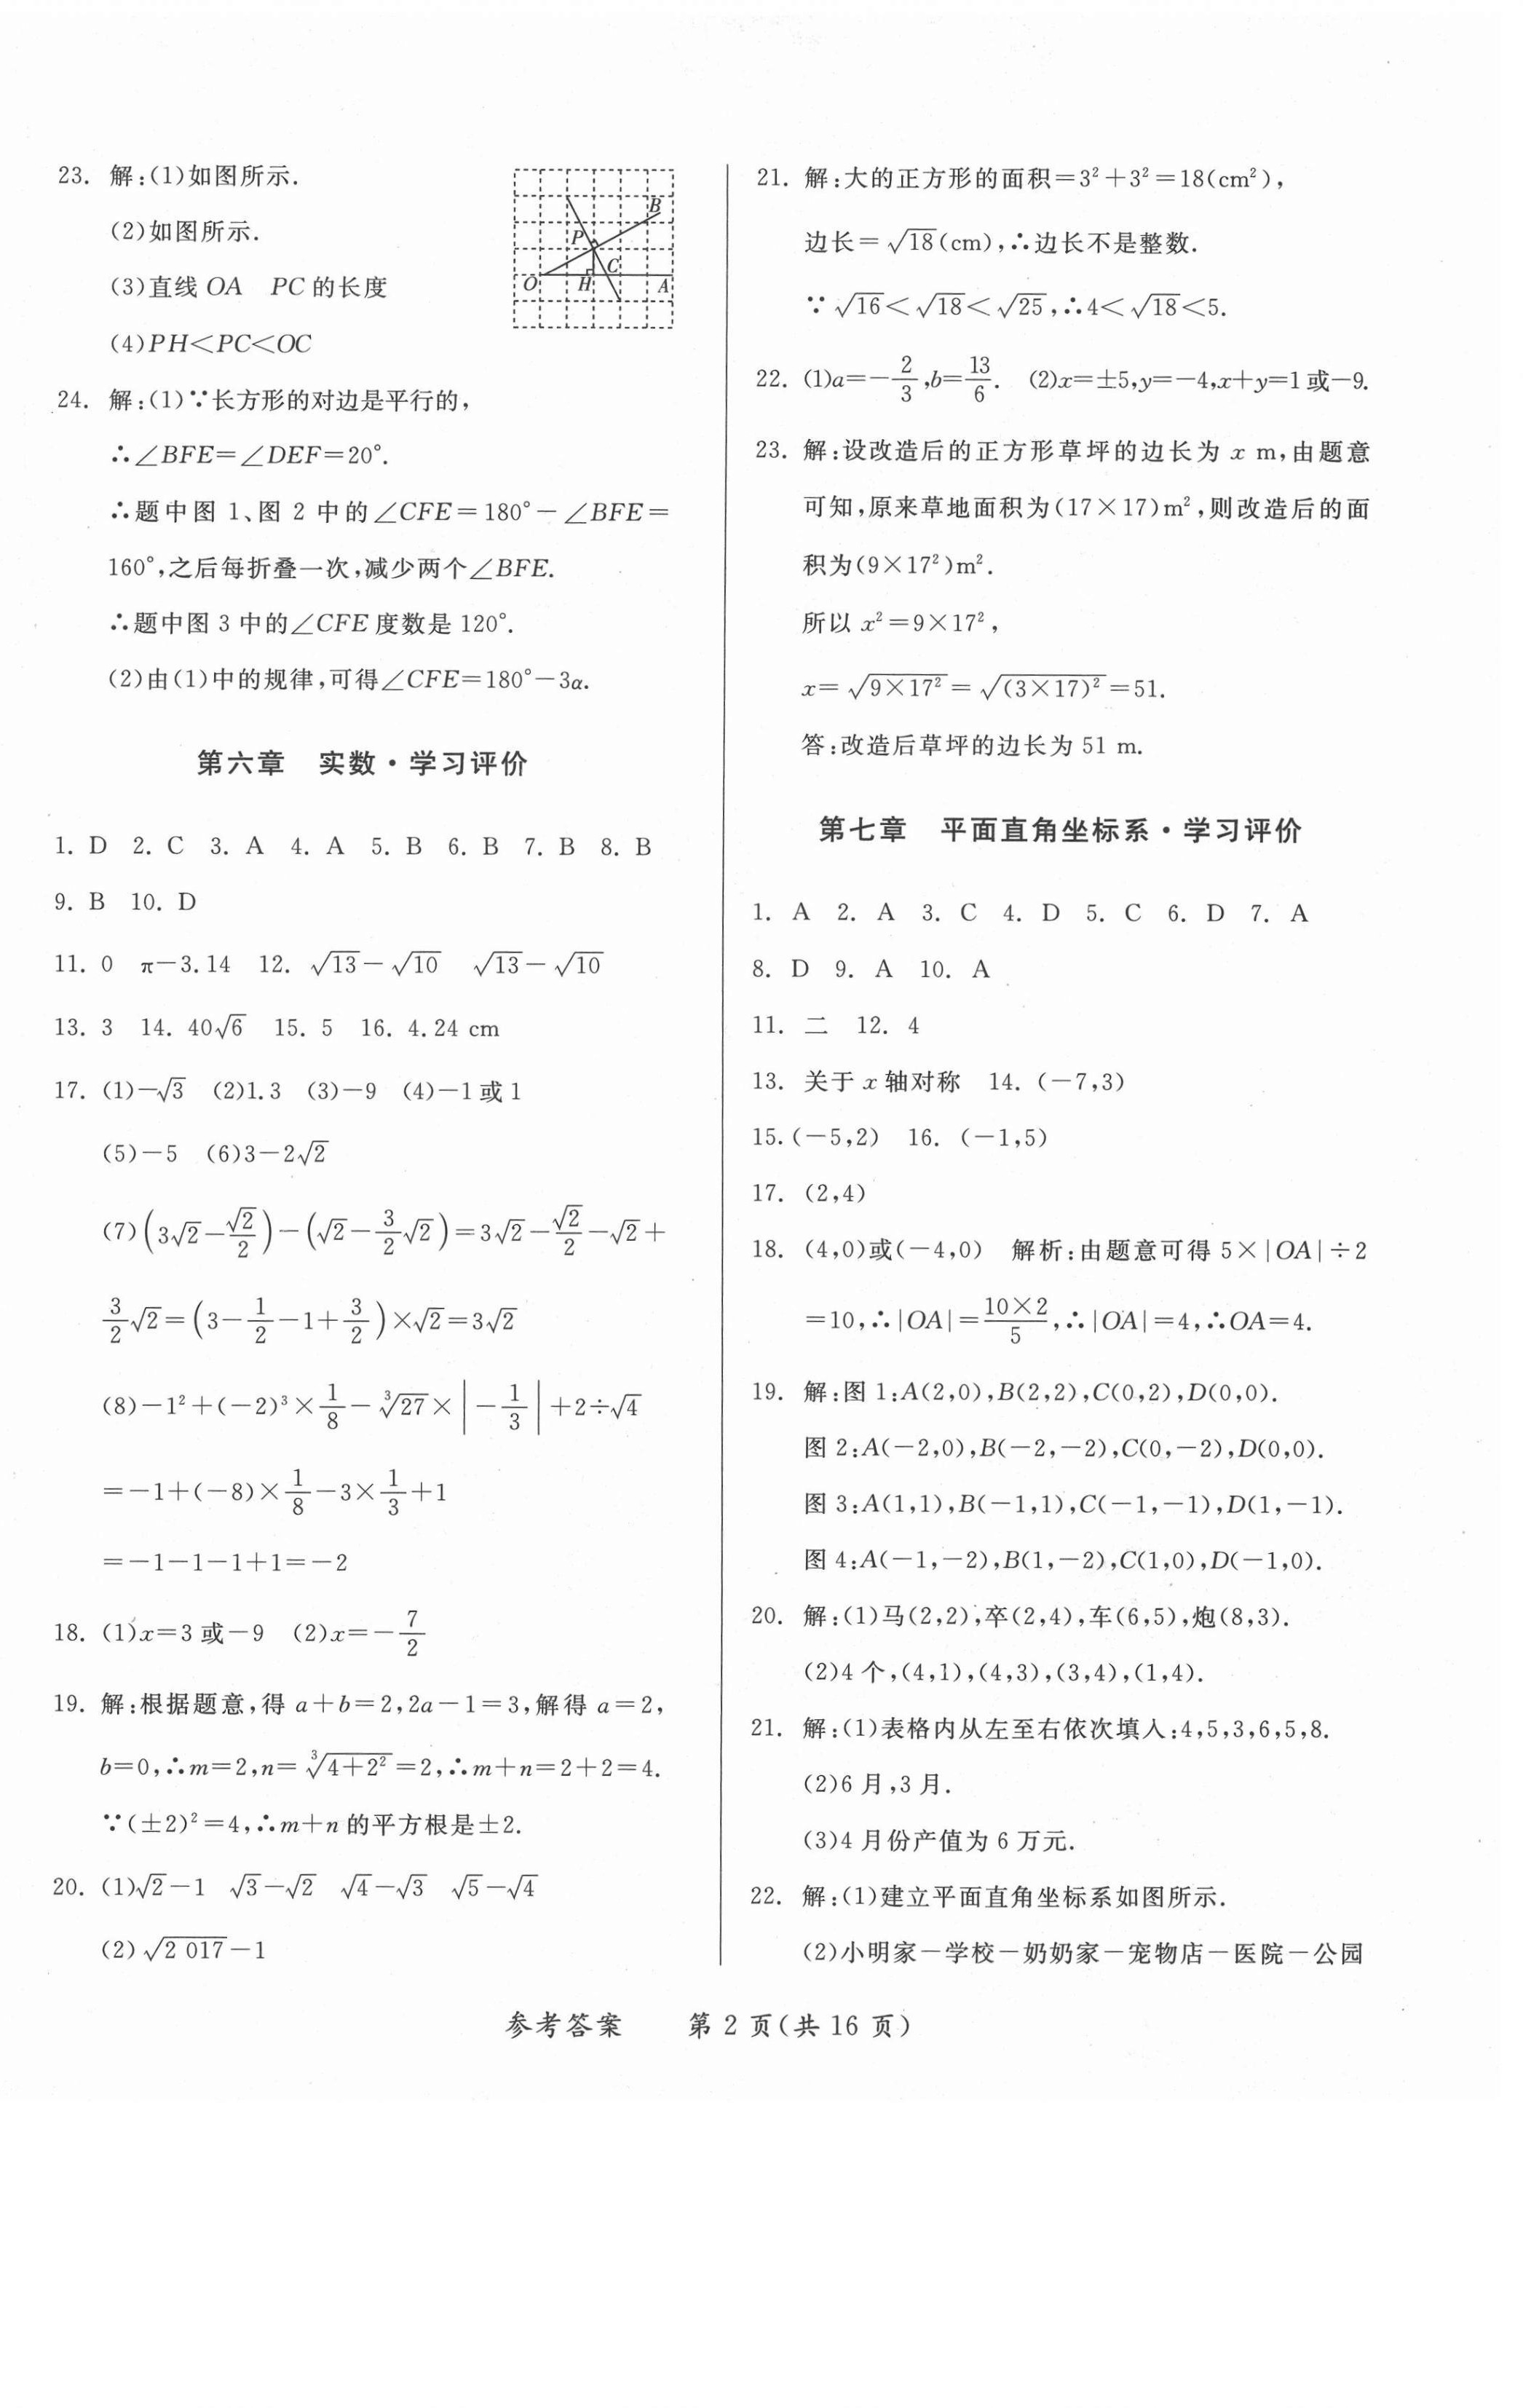 23. 解:(1)如图所示.
(2)如图所示.
(3)直线 OA　PC 的长度
(4)PH<PC<OC
B
P
C
O
H
A
24. 解:(1)∵长方形的对边是平行的,
∴∠BFE=∠DEF=20°.
∴题中图 1、图 2 中的∠CFE=180°-∠BFE=
160°,之后每折叠一次,减少两个∠BFE.
∴题中图 3 中的∠CFE 度数是 120°.
(2)由(1)中的规律,可得∠CFE=180°-3α.
第六章　实数·学习评价
1. D　2. C　3. A　4. A　5. B　6. B　7. B　8. B
9. B　10. D
11. 0　π-3.14　12. √13-√10　√13-√10
13. 3　14. 40√6　15. 5　16. 4.24 cm
17. (1)-√3　(2)1.3　(3)-9　(4)-1 或 1
(5)-5　(6)3-2√2
(7)(3√2-√2/2)-(√2-3/2√2)=3√2-√2/2-√2+
3/2√2=(3-1/2-1+3/2)×√2=3√2
(8)-1²+(-2)³×1/8-³√27×|-1/3|+2÷√4
=-1+(-8)×1/8-3×1/3+1
=-1-1-1+1=-2
18. (1)x=3 或-9　(2)x=-7/2
19. 解:根据题意,得 a+b=2,2a-1=3,解得 a=2,
b=0,∴m=2,n=³√(4+2²)=2,∴m+n=2+2=4.
∵(±2)²=4,∴m+n 的平方根是±2.
20. (1)√2-1　√3-√2　√4-√3　√5-√4
(2)√2 017-1
21. 解:大的正方形的面积=3²+3²=18(cm²),
边长=√18(cm),∴边长不是整数.
∵√16<√18<√25,∴4<√18<5.
22. (1)a=-2/3,b=13/6.　(2)x=±5,y=-4,x+y=1 或-9.
23. 解:设改造后的正方形草坪的边长为 x m,由题意
可知,原来草地面积为(17×17)m²,则改造后的面
积为(9×17²)m².
所以 x²=9×17²,
x=√(9×17²)=√((3×17)²)=51.
答:改造后草坪的边长为 51 m.
第七章　平面直角坐标系·学习评价
1. A　2. A　3. C　4. D　5. C　6. D　7. A
8. D　9. A　10. A
11. 二　12. 4
13. 关于 x 轴对称　14. (-7,3)
15. (-5,2)　16. (-1,5)
17. (2,4)
18. (4,0)或(-4,0)　解析:由题意可得 5×|OA|÷2
=10,∴|OA|=10×2/5,∴|OA|=4,∴OA=4.
19. 解:图 1:A(2,0),B(2,2),C(0,2),D(0,0).
图 2:A(-2,0),B(-2,-2),C(0,-2),D(0,0).
图 3:A(1,1),B(-1,1),C(-1,-1),D(1,-1).
图 4:A(-1,-2),B(1,-2),C(1,0),D(-1,0).
20. 解:(1)马(2,2),卒(2,4),车(6,5),炮(8,3).
(2)4 个,(4,1),(4,3),(3,4),(1,4).
21. 解:(1)表格内从左至右依次填入:4,5,3,6,5,8.
(2)6 月,3 月.
(3)4 月份产值为 6 万元.
22. 解:(1)建立平面直角坐标系如图所示.
(2)小明家-学校-奶奶家-宠物店-医院-公园
参考答案　第 2 页(共 16 页)